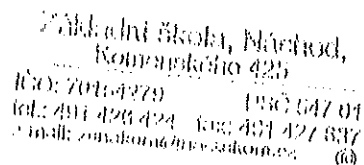 Základní škola, Náchod,
Komenského 425
IČO: 70154279 PSČ 547 01
tel.: 491 426 424 fax: 491 427 837
e-mail: